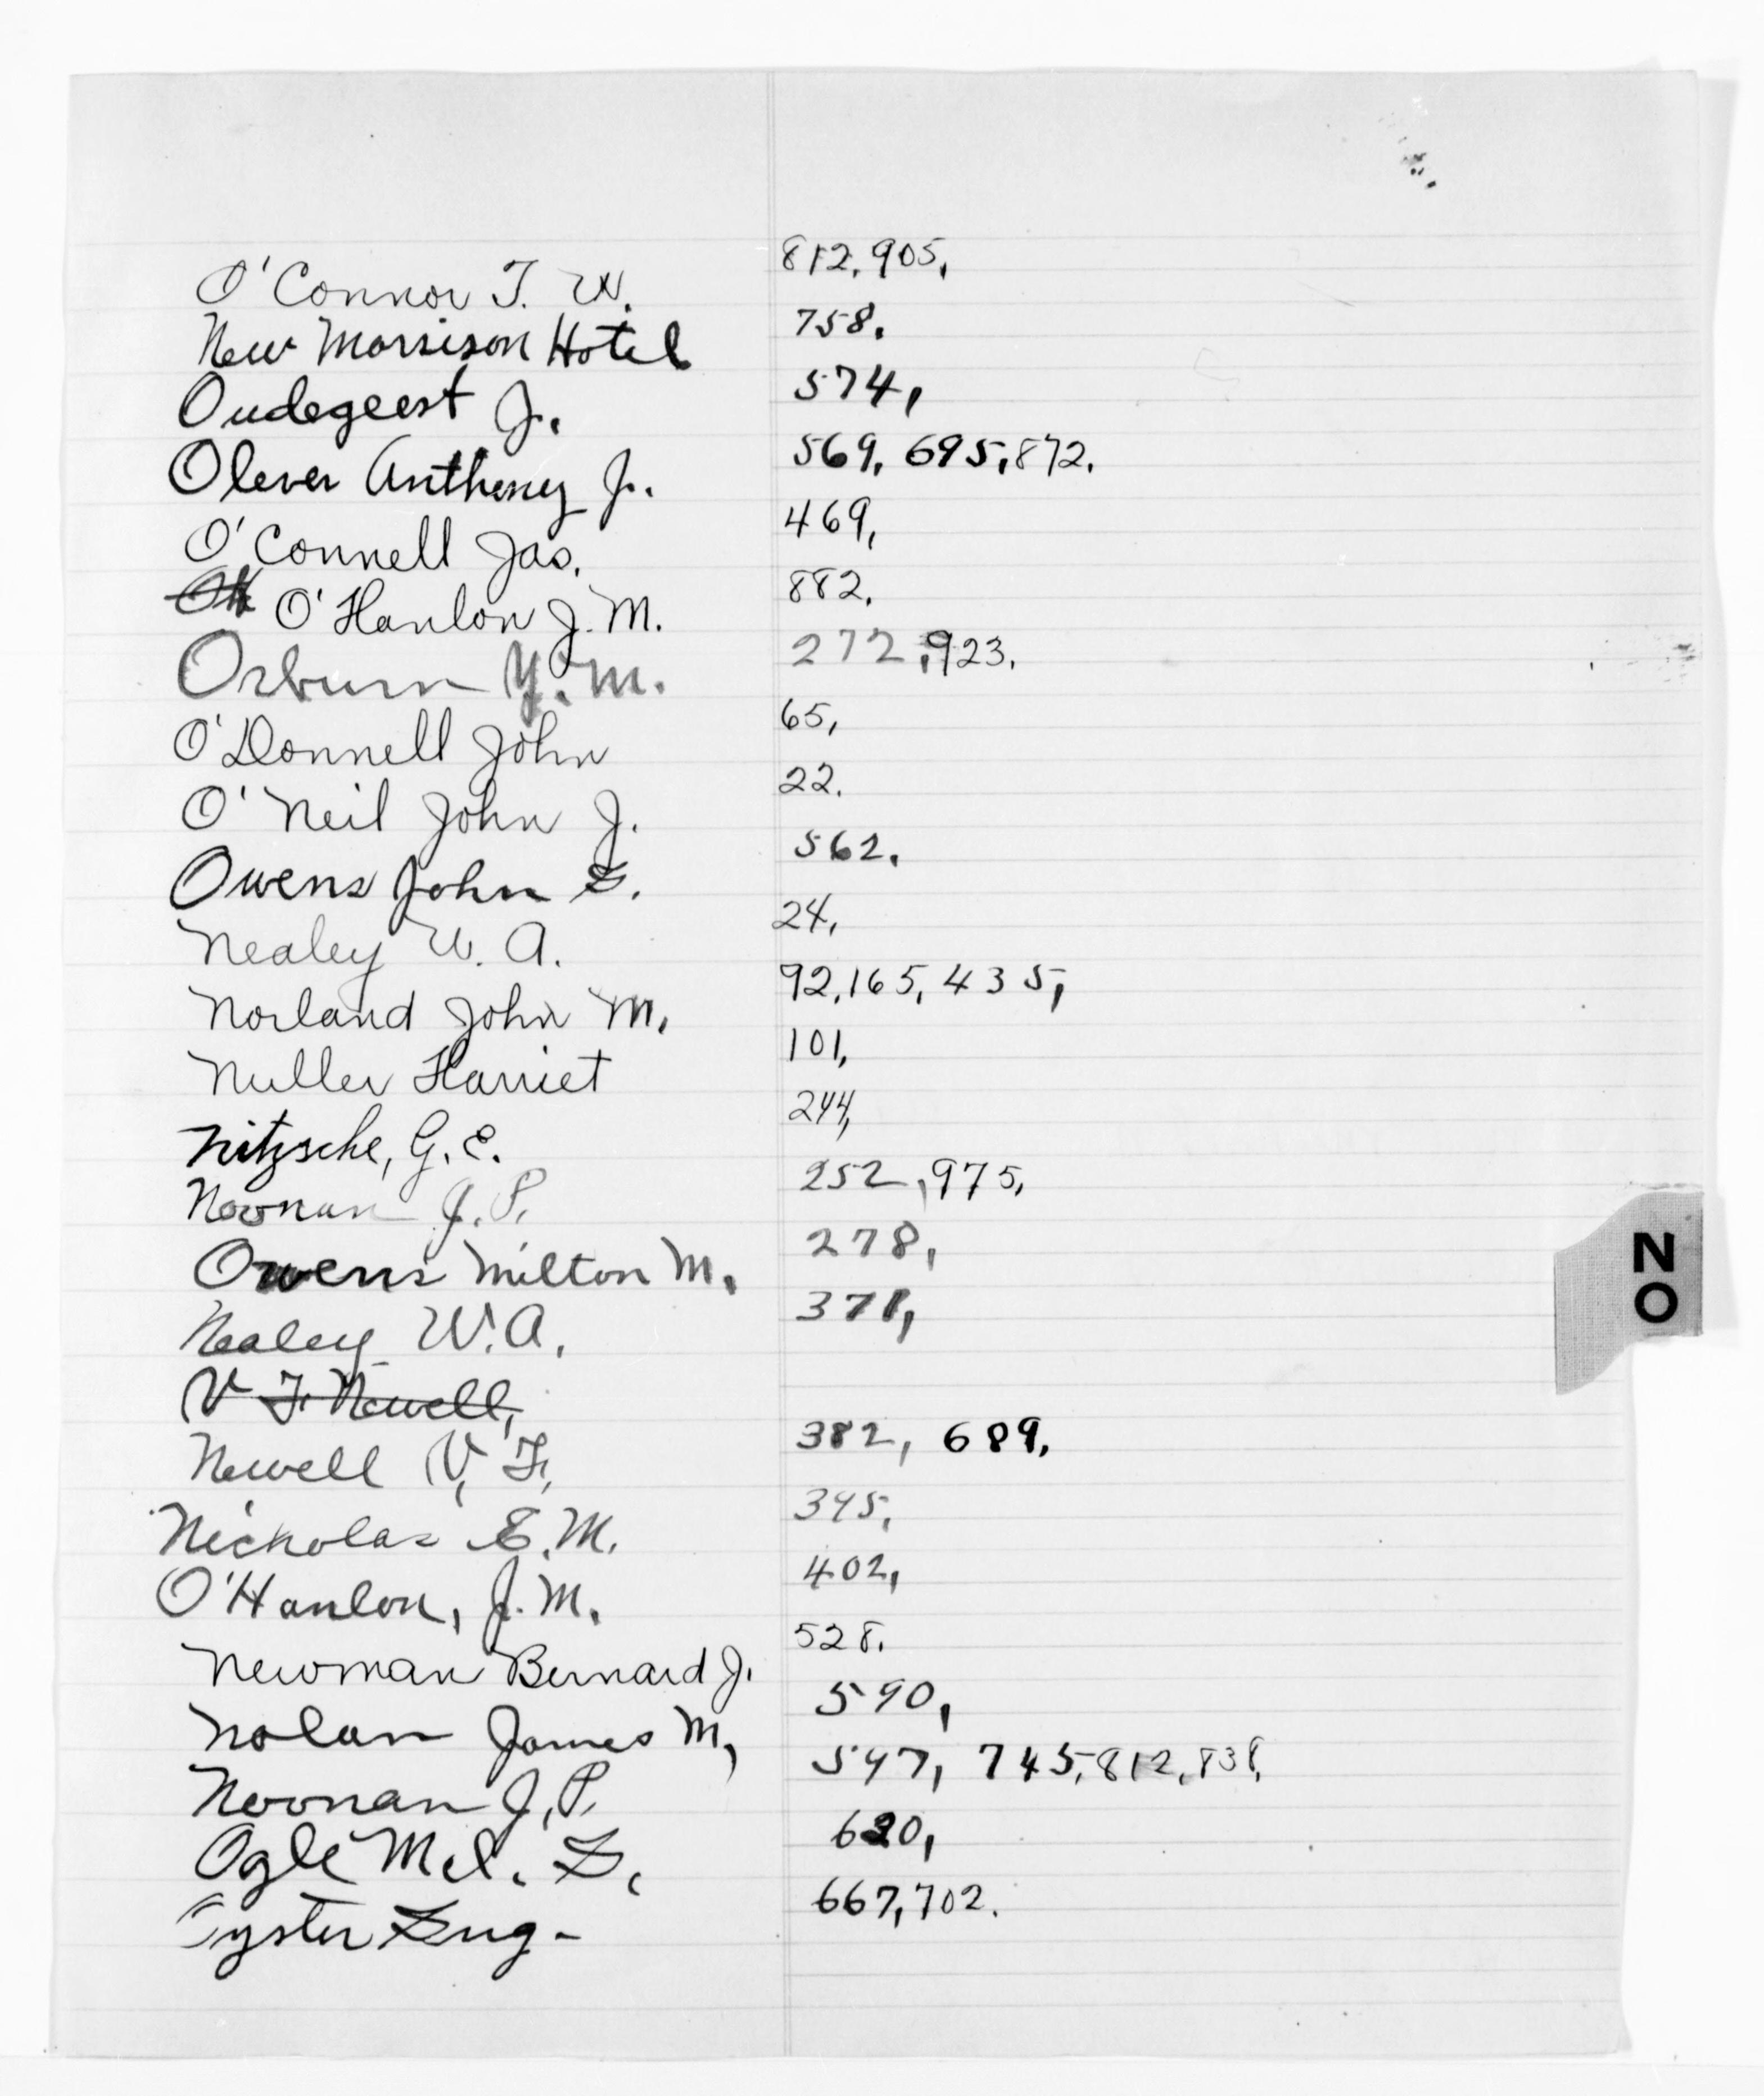 O'Connor T. W. 812, 905,
New Morrison Hotel 758.
Oudegeest J. 574,
Olever Anthony J. 569, 695, 872.
O'Connell Jas. 469,
OH O'Hanlon J. M. 882.
Orburn Y. M. 272, 923.
O'Donnell John 65,
O'Neil John J. 22.
Owens John S. 562.
Nealey W. A. 24,
Norland John M. 92, 165, 435,
Nuller Harriet 101,
Nitzsche, G. E. 244,
Noonan J. P. 252, 975,
Owens Milton M. 278,
Nealey W. A. 371,
V F. Newell,
Newell V. F. 382, 689,
Nicholas E. M. 345,
O'Hanlon, J. M. 402,
Newman Bernard J. 528.
Nolan James M, 590,
Noonan J. P. 597, 745, 812, 838,
Ogle Mel. S. 620,
Oyster Eug- 667, 702.
NO